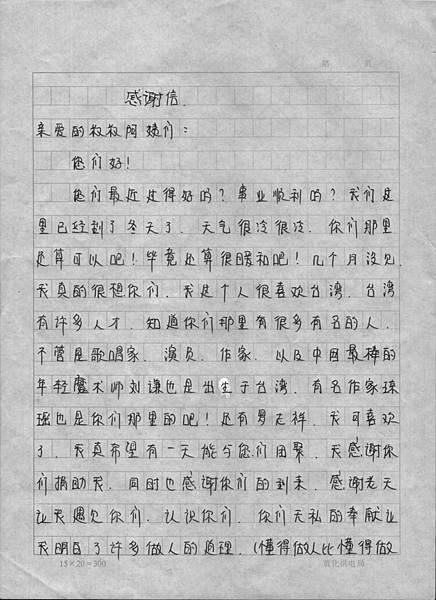 感谢信.
亲爱的叔叔阿姨们:
您们好!
您们最近过得好吗?事业顺利吗?我们这
里已经到了冬天了.天气很冷很冷.你们那里
还算可以吧!毕竟还算很暖和吧!几个月没见.
我真的很想你们.我这个人很喜欢台湾.台湾
有许多人才.知道你们那里有很多有名的人.
不管是歌唱家.演员.作家.以及中国最棒的
年轻魔术师刘谦也是出生于台湾.有名作家琼
瑶也是你们那里的吧!还有罗志祥.我可喜欢
了.我真希望有一天能与您们团聚.我感谢你
们捐助我.同时也感谢你们的到来.感谢老天
让我遇见你们.认识你们.你们无私的奉献让
我明白了许多做人的道理.(懂得做人比懂得做
15×20=300